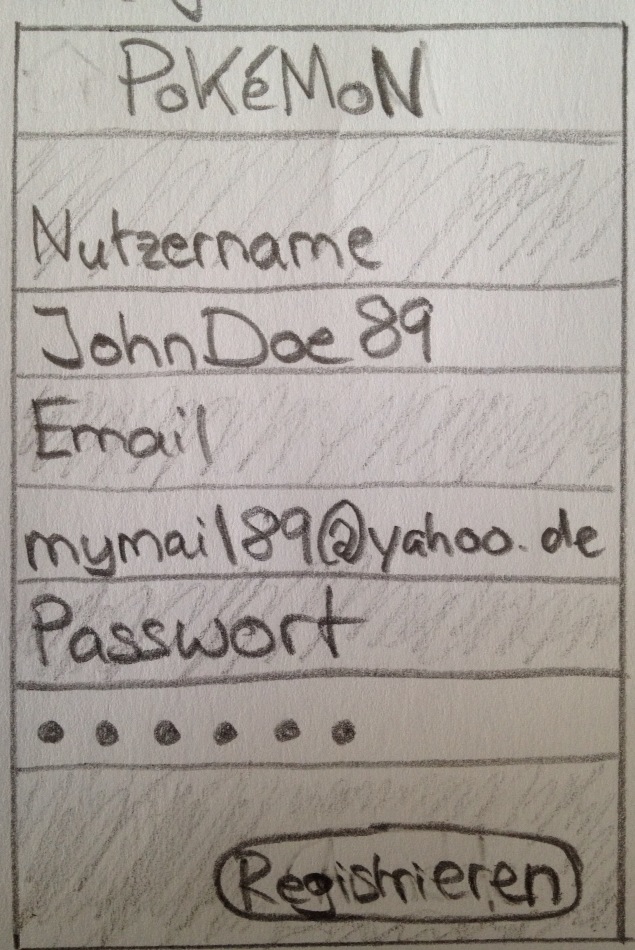 PoKéMoN
Nutzername
JohnDoe89
Email
mymail89@yahoo.de
Passwort
••••••
Registrieren